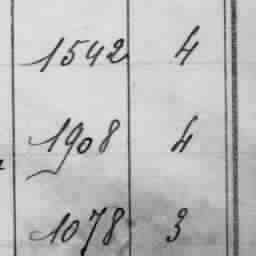 1542 4
1908 4
1078 3